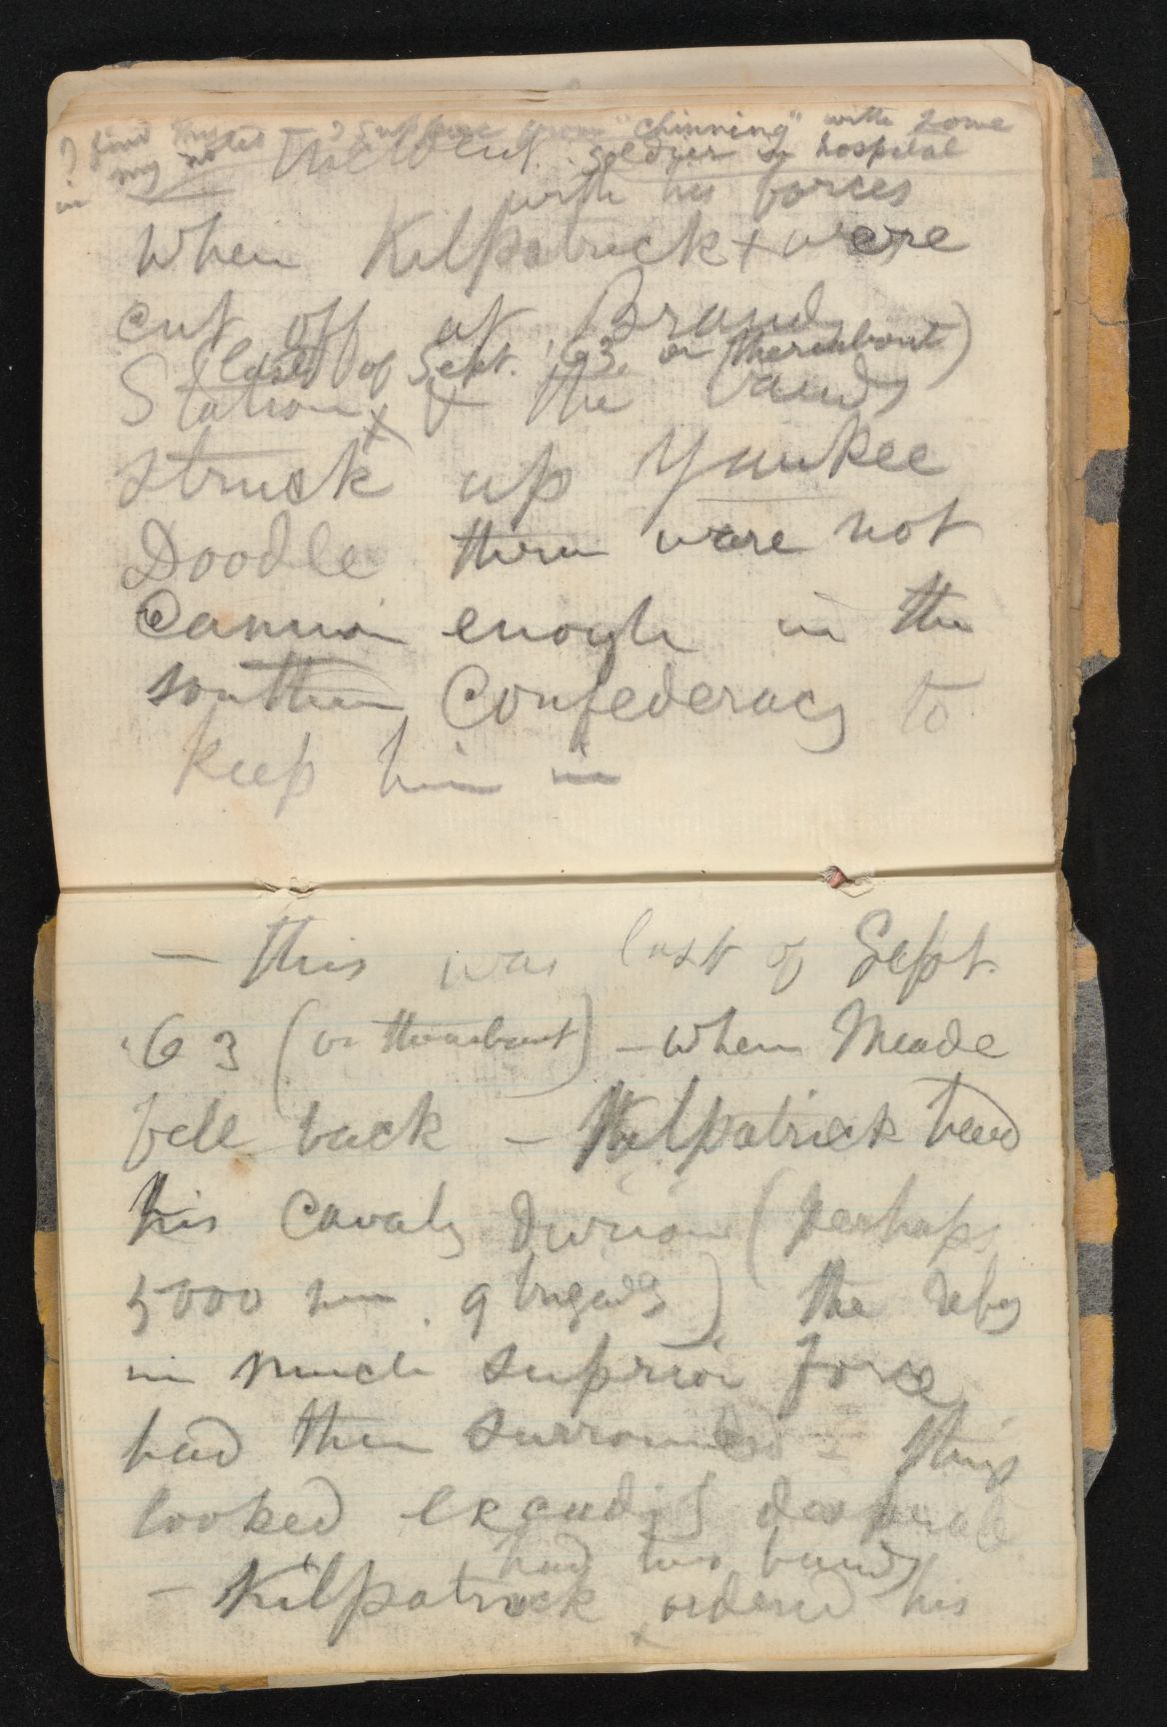 I find this – I suppose from "chinning" with some
in my notes Incident. soldier in hospital
with his forces
When Kilpatrick x were
cut off at Brandy
(last of Sept. '63, or thereabout)
Station x & the bands
struck up Yankee
Doodle there were not
Cannon enough in the
southern Confederacy to
keep him in
— this was last of Sept.
'63 (or thereabout) – when Meade
fell back – Kilpatrick had
his Cavalry Division (perhaps
5000 men brigades) the rebs
in much superior force
had them surrounded – things
looked exceedingly desperate
had two bands
– Kilpatrick x ordered his